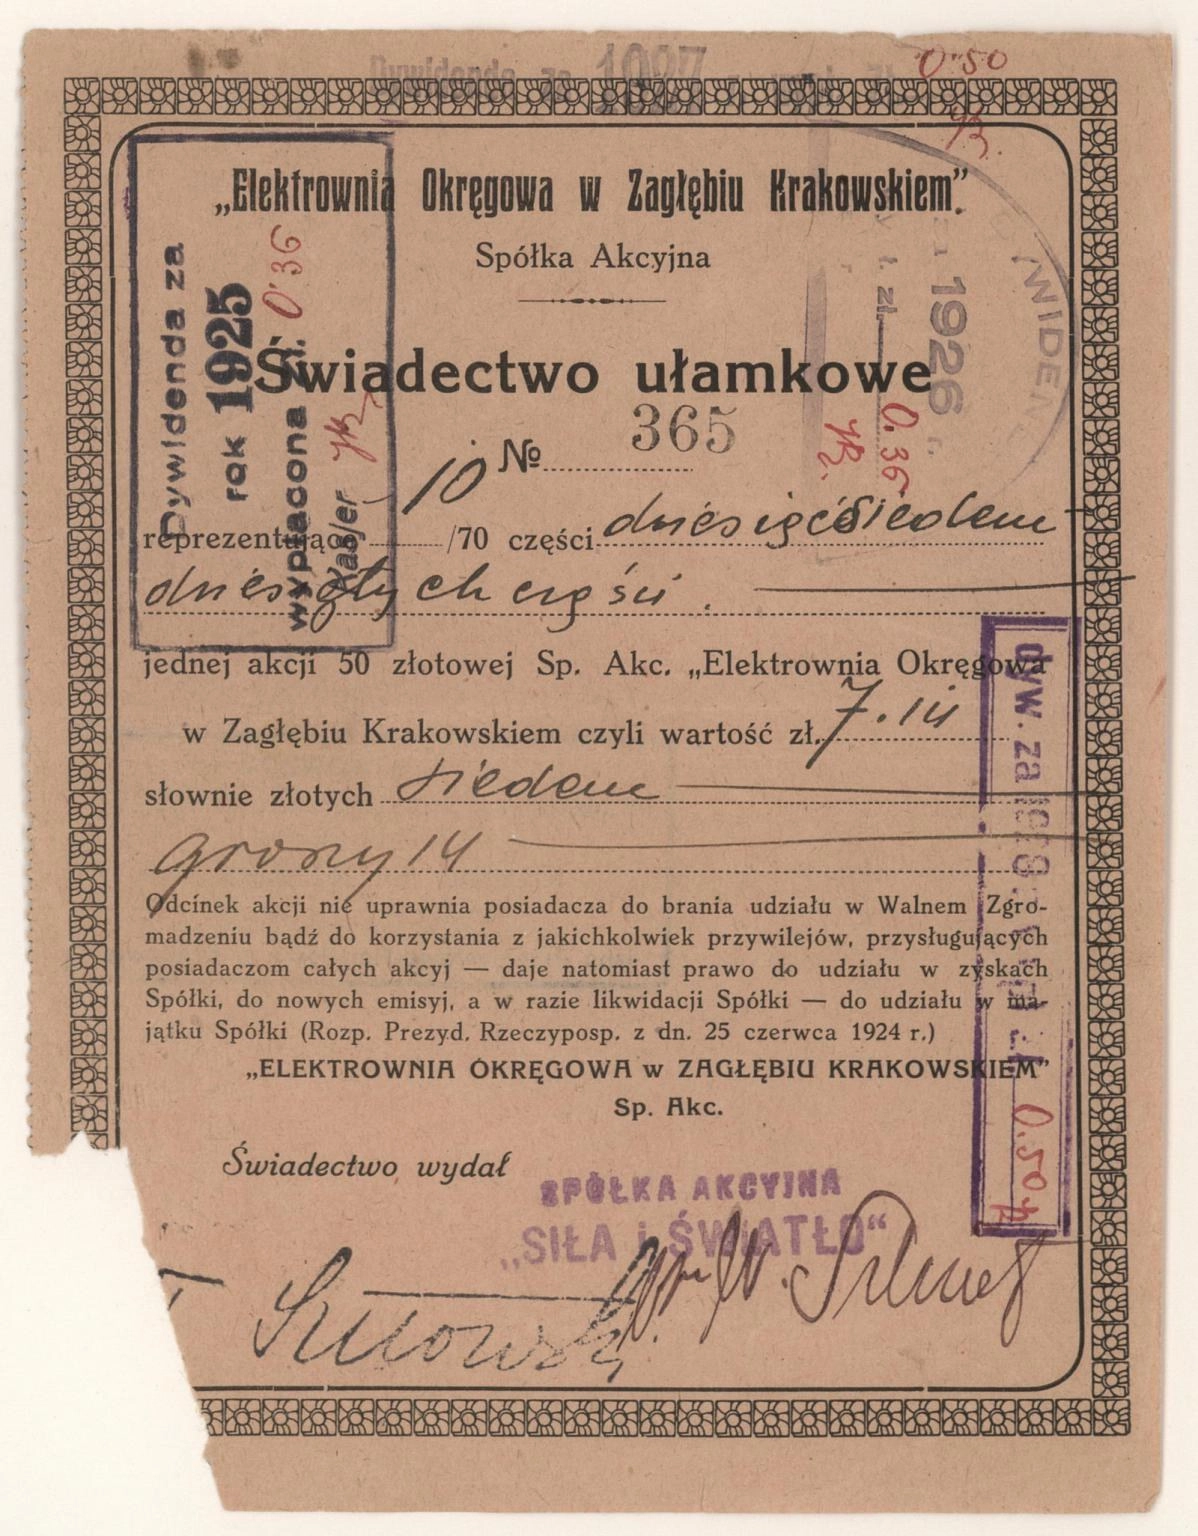 Dywidenda za 1927
0.50
„Elektrownia Okręgowa w Zagłębiu Krakowskiem”.
Spółka Akcyjna
Dywidenda za
rok 1925
wypłacona zł. 0.36
Kasjer
DYWIDEND
1926 r.
zł. 0.36
Świadectwo ułamkowe
№ 365
reprezentujące 10/70 części dziesięć siedem-
dziesiątych części.
jednej akcji 50 złotowej Sp. Akc. „Elektrownia Okręgowa
w Zagłębiu Krakowskiem czyli wartość zł. 7.14
słownie złotych siedem
groszy 14
dyw. za 1928
0.50
Odcinek akcji nie uprawnia posiadacza do brania udziału w Walnem Zgro-
madzeniu bądź do korzystania z jakichkolwiek przywilejów, przysługujących
posiadaczom całych akcyj — daje natomiast prawo do udziału w zyskach
Spółki, do nowych emisyj, a w razie likwidacji Spółki — do udziału w ma-
jątku Spółki (Rozp. Prezyd. Rzeczyposp. z dn. 25 czerwca 1924 r.)
„ELEKTROWNIA OKRĘGOWA w ZAGŁĘBIU KRAKOWSKIEM”
Sp. Akc.
Świadectwo wydał
SPÓŁKA AKCYJNA
„SIŁA i ŚWIATŁO“